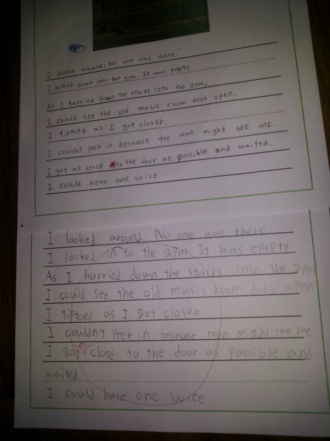 I looked around. No one was there.
I looked down into the gym. It was empty
As I hurried down the stairs into the gym,
I could see the old music room door open.
I tiptoed as I got closer.
I couldn't peek in because the man might see me.
I got as close to the door as possible and waited.
I could hear one voice
I looked around No one was there
I looked in to the gym. It was empty
As I hurried down the stairs into the gym
I could see the old music room door open
I tiptoed as I got closer
I couldn't peek in because man might see me
I got close to the door as possible and
waited.
I could here one voice